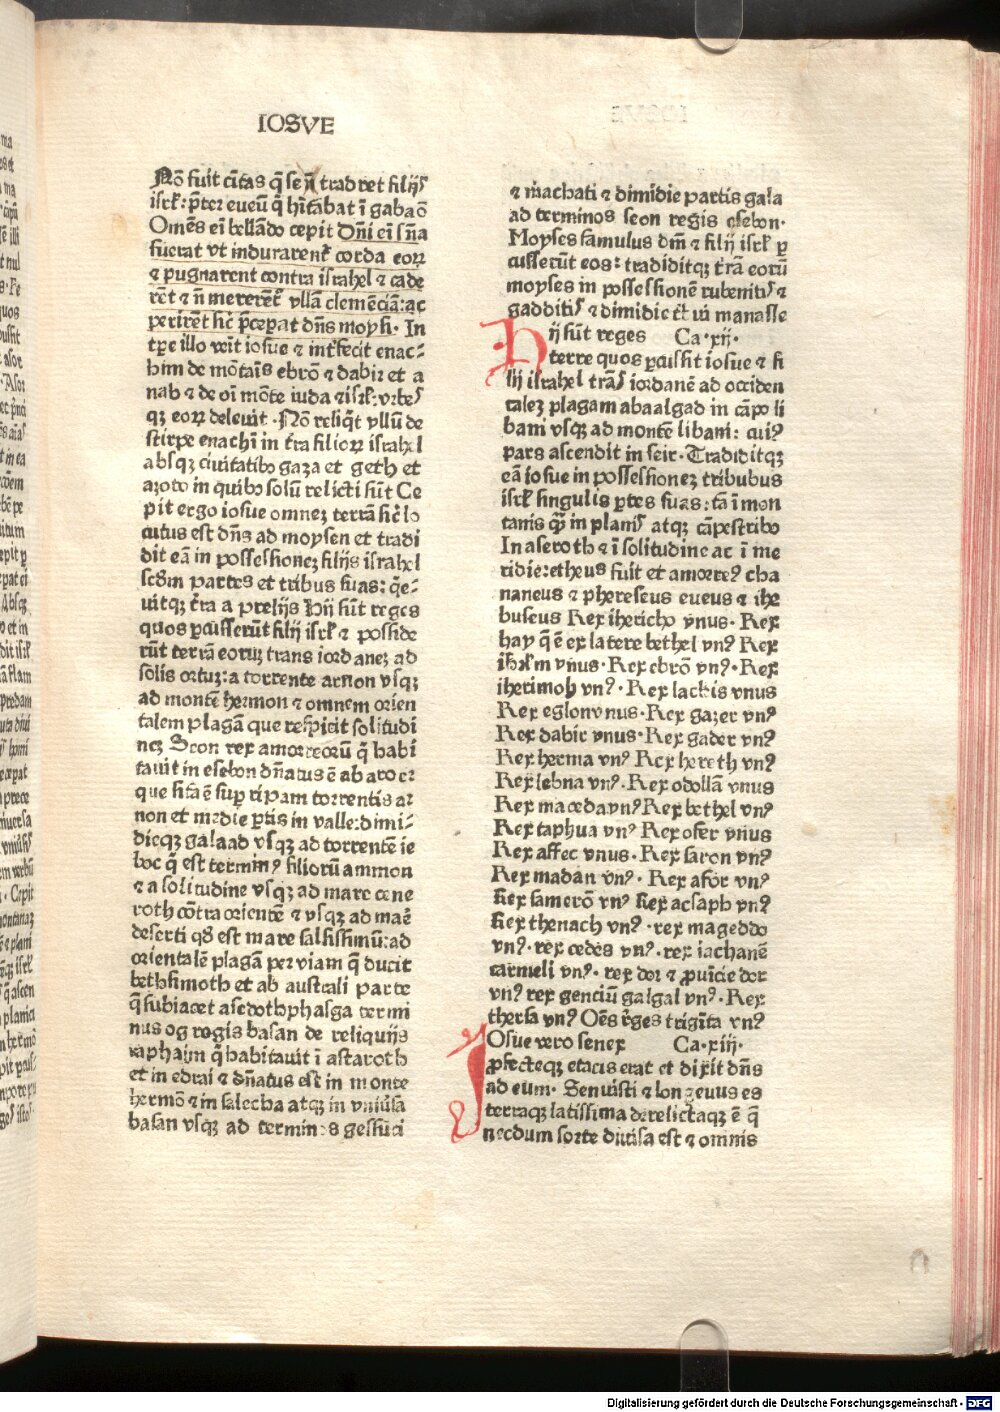 IOSVE
Nō fuit ciītas q̄ se nō tradret filijs
isrl̄: p̄ter eueū q̄ hītabat ī gabaō
Omēs eī bellādo cepit Dn̄i eī sn̄a
fuerat vt indurarent᷑ corda eoꝝ
⁊ pugnarent contra israhel ⁊ cade
rēt ⁊ n̄ mererēt᷑ vllā clemēciā: ac
perirēt sic̄ p̄ceperat dn̄s moysi· In
tꝑe illo veīt iosue ⁊ int᷑fecit enac⸗
him de mōtaīs ebrō ⁊ dabir et a
nab ⁊ de oī mōte iuda ⁊ isrl̄: vrbes
qꝫ eoꝝ deleuit · Nō reliq̄t vllū de
stirpe enachī in t᷑ra filioꝝ israhel
absqꝫ ciuitatibꝰ gaza et geth et
azoto in quibꝰ solū relicti sūt Ce
pit ergo iosue omneꝫ terrā sic̄ lo
cutus est dn̄s ad moysen et tradi
dit eā in possessioneꝫ filijs israhel
scd̄m partes et tribus suas: q̄e⸗
uitqꝫ t᷑ra a prelijs Hij sūt reges
quos ꝑcusserūt filij isrl̄ ⁊ posside
rūt terrā eoruꝫ trans iordaneꝫ ad
solis ortuꝫ: a torrente arnon vsqꝫ
ad montē hermon ⁊ omnem orien
talem plagā que respicit solitudi
neꝫ Seon rex amorreorū q̄ habi
tauit in esebon dn̄atus ē ab aroer
que sita ē suꝑ ripam torrentis ar
non et medie ꝑtis in valle: dimi⸗
dieqꝫ galaad vsqꝫ ad torrentē ie
boc q̄ est terminꝰ filiorū ammon
⁊ a solitudine vsqꝫ ad mare cene
roth cōtra oriente ⁊ vsqꝫ ad maē
deserti qd̄ est mare salsissimū: ad
orientalē plagā per viam q̄ ducit
bethsimoth et ab australi parte
q̄ subiacet asedothphasga termi
nus og regis basan de reliquijs
raphaim q̄ habitauit ī astaroth
et in edrai ⁊ dn̄atus est in monte
hermō ⁊ in salecha atqꝫ in vniūsa
basan vsqꝫ ad terminos gessuri
⁊ machati ⁊ dimidie partis gala
ad terminos seon regis esebon·
Moyses famulus dn̄i ⁊ filij isrl̄ ꝑ
cusserūt eos: tradiditqꝫ t᷑rā eorū
moyses in possessionē rubenitis ⁊
gadditis ⁊ dimidie t᷑bui manasse
Hij sūt reges Ca·xij·
terre quos ꝑcussit iosue ⁊ fi
lij israhel trās iordanē ad occiden
taleꝫ plagam abaalgad in cāpo li
bani vsqꝫ ad montē libani: cuiꝰ
pars ascendit in seir· Tradiditqꝫ
eā iosue in possessioneꝫ tribubus
isrl̄ singulis ꝑtes suas: tā ī mon
tanis q̄ꝫ in planis atqꝫ cāpestribꝰ
In aseroth ⁊ ī solitudine ac ī me
ridie: etheus fuit et amorreꝰ cha
naneus ⁊ phereseus eueus ⁊ ihe
buseus Rex ihericho vnus· Rex
hay q̄ ē ex latere bethel vnꝰ Rex
ihrl̄m vnus· Rex ebrō vnꝰ· Rex
iherimoh vnꝰ· Rex lachis vnus
Rex eglon vnus· Rex gazer vnꝰ
Rex dabir vnus· Rex gader vnꝰ
Rex herma vnꝰ Rex hereth vnꝰ
Rex lebna vnꝰ· Rex odollā vnus
Rex maceda vnꝰ Rex bethel vnꝰ
Rex taphua vnꝰ Rex ofer vnus
Rex affec vnus· Rex saron vnꝰ
Rex madan vnꝰ· Rex asor vnꝰ
Rex samerō vnꝰ Rex acsaph vnꝰ
Rex thenach vnꝰ· rex mageddo
vnꝰ· rex cedes vnꝰ· rex iachanē
carmeli vnꝰ· rex dor ⁊ ꝓuīcie dor
vnꝰ rex genciū galgal vnꝰ· Rex
thersa vnꝰ Oēs r̄ges trigīta vnꝰ
IOsue vero senex Ca·xiij·
ꝓfecteqꝫ etatis erat et dixit dn̄s
ad eum· Senuisti ⁊ longeuus es
terraqꝫ latissima derelictaqꝫ ē q̄
necdum sorte diuisa est ⁊ omnis
Digitalisierung gefördert durch die Deutsche Forschungsgemeinschaft - DFG